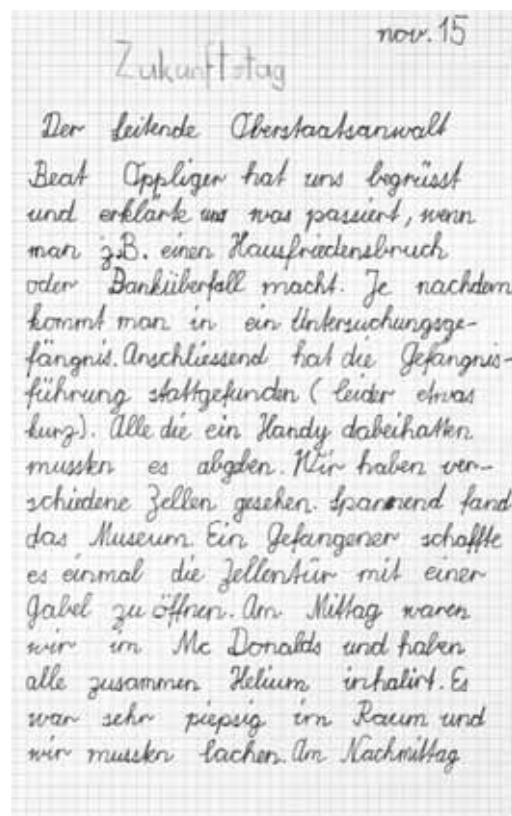 nov. 15
Zukunftstag
Der leitende Oberstaatsanwalt
Beat Oppliger hat uns begrüsst
und erklärte uns was passiert, wenn
man z.B. einen Hausfriedensbruch
oder Banküberfall macht. Je nachdem
kommt man in ein Untersuchungsge-
fängnis. Anschliessend hat die Gefängnis-
führung stattgefunden (leider etwas
kurz). Alle die ein Handy dabeihatten
mussten es abgben. Wir haben ver-
schiedene Zellen gesehen. Spannend fand
das Museum. Ein Gefangener schaffte
es einmal die Zellentür mit einer
Gabel zu öffnen. Am Mittag waren
wir im Mc Donalds und haben
alle zusammen Helium inhalirt. Es
war sehr piepsig im Raum und
wir mussten lachen. Am Nachmittag